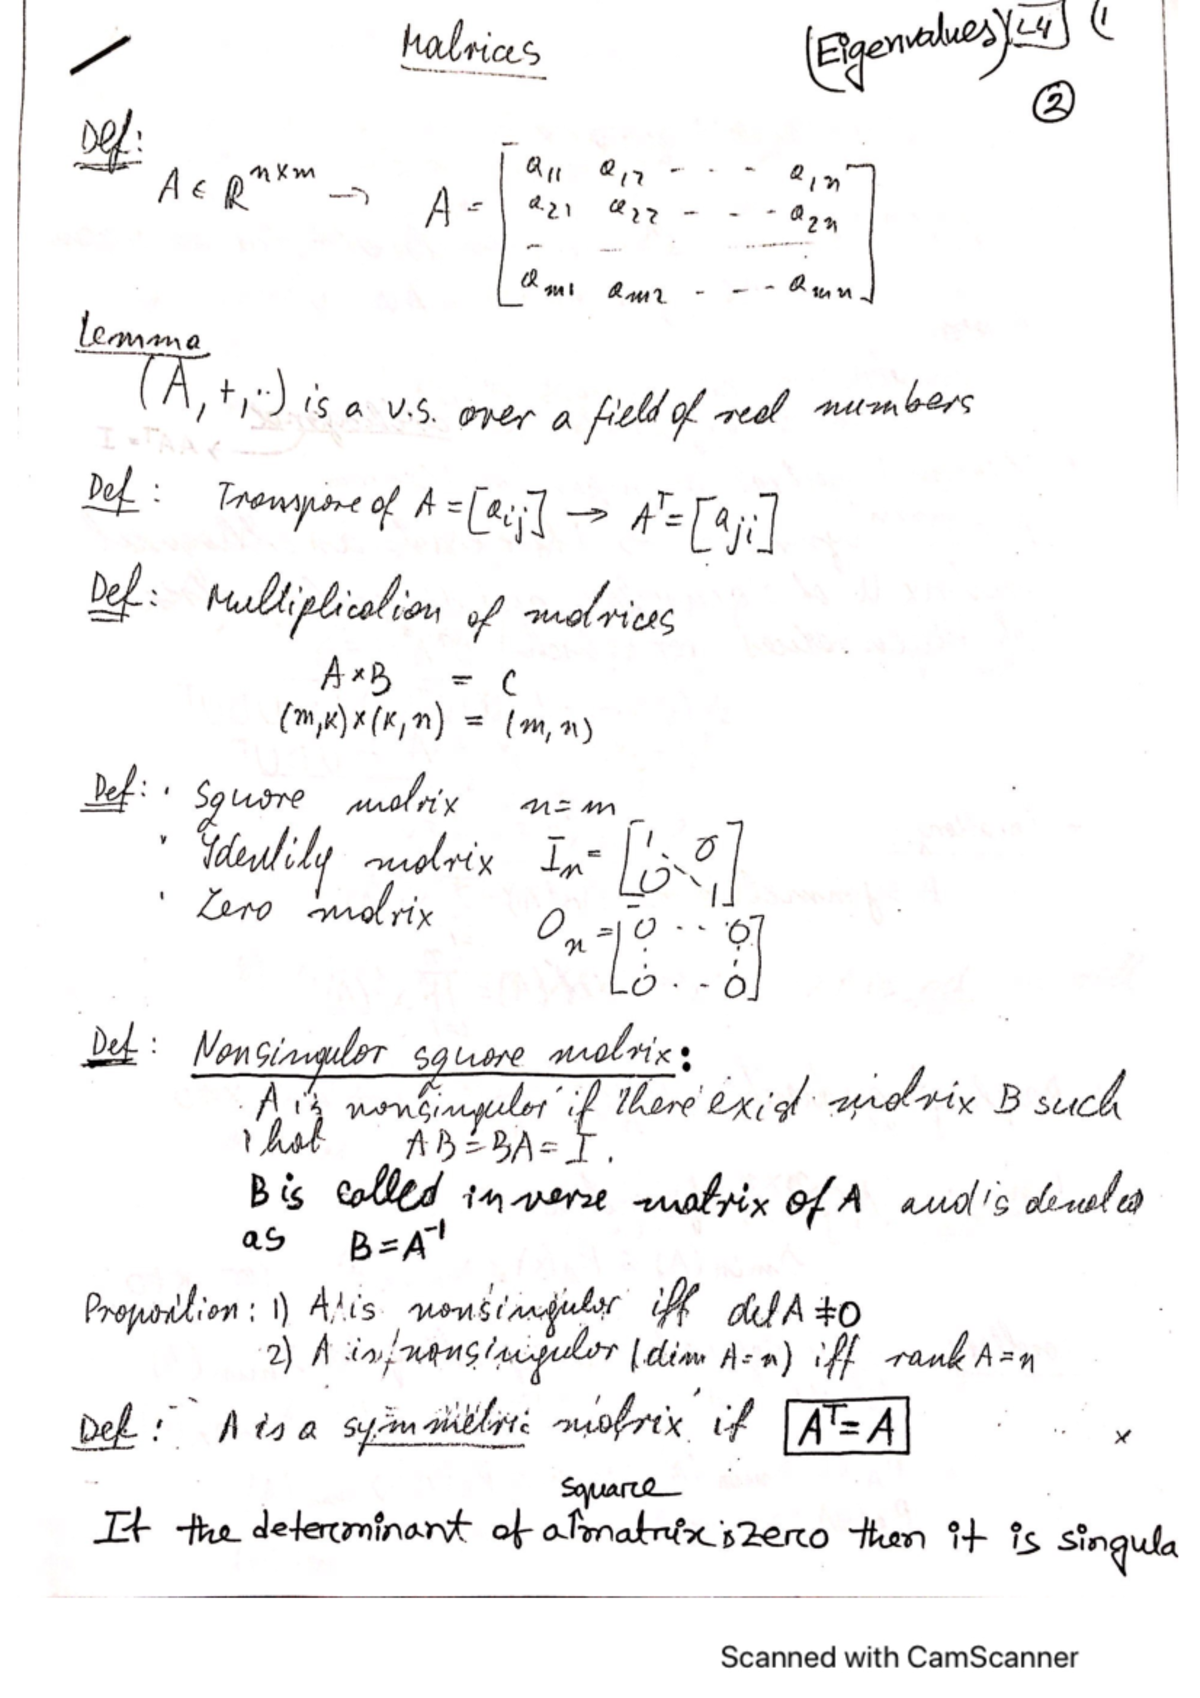 Matrices
(Eigenvalues) L4 (1
②
Def:
A ∈ ℝ^{n×m} → A = [a₁₁ a₁₂ - - - a₁ₙ
a₂₁ a₂₂ - - - a₂ₙ
- - -
aₘ₁ aₘ₂ - - - aₘₙ]
Lemma
(A, +, ··) is a v.s. over a field of real numbers
Def: Transpose of A = [aᵢⱼ] → Aᵀ = [aⱼᵢ]
Def: Multiplication of matrices
A × B = C
(m,k) × (k,n) = (m,n)
Def: · Square matrix n = m
· Identity matrix Iₙ = [1 0
0 1]
· Zero matrix Oₙ = [0 ·· 0
⋮ ⋮
0 ·· 0]
Def: Nonsingular square matrix:
A is nonsingular if there exist matrix B such
that AB = BA = I.
B is called inverse matrix of A and is denoted
as B = A⁻¹
Proposition: 1) A is nonsingular iff det A ≠ 0
2) A is nonsingular (dim A = n) iff rank A = n
Def: A is a symmetric matrix if Aᵀ = A
x
square
If the determinant of a matrix is zero then it is singula
Scanned with CamScanner